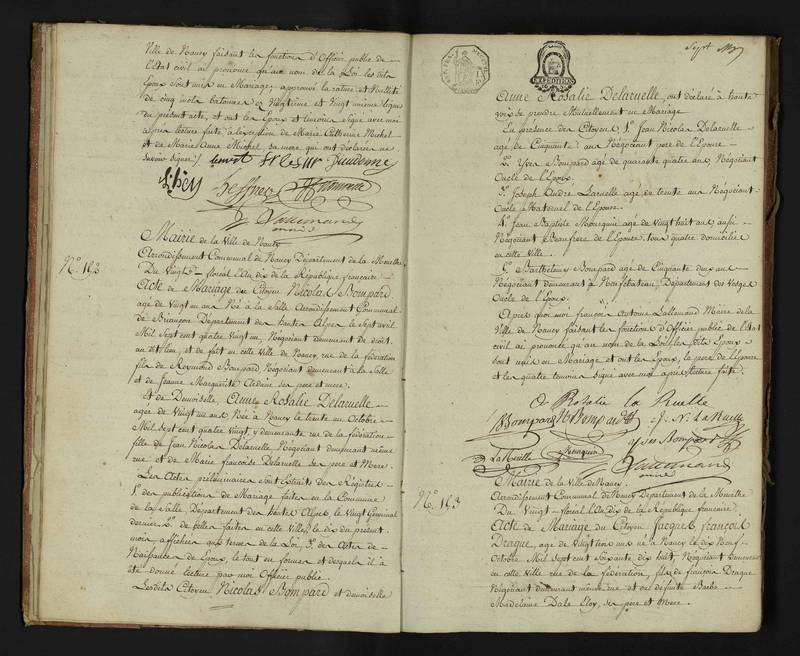 Ville de Nancy faisant les fonctions d'Officier public de
l'Etat civil ai prononcé qu'au nom de la Loi les dits
Epoux sont unis en Mariage; approuvé la rature et Nullité
de cinq mots batonnés es Vingtième et Vingt unième lignes
du présent acte, et ont les Epoux et temoins signé avec moi
après lecture faite à l'exception de Marie Catherine Michel
et de Marie Anne Michel sa mere qui ont déclaré ne
savoir signer./.
Lallemand
maire
Mairie de la Ville de Nancy
Arrondissement Communal de Nancy Département de la Meurthe
No. 192
Du Vingt floréal l'An dix de la République française
Acte de Mariage du Citoyen Nicolas Bompard
agé de Vingt un ans Né à la Salle Arrondissement Communal
de Briançon Département des hautes Alpes, le Sept avril
Mil Sept cent quatre Vingt un, Négociant demeurant de droit
au dit lieu, et de fait en cette Ville de Nancy, rue de la fédération
fils de Raymond Bompard Négociant demeurant à la Salle
et de Jeanne Marguerite ses pere et mere.
Et de Demoiselle Anne Rosalie Delaruelle
agée de Vingt un ans Née à Nancy le trente un Octobre
Mil Sept cent quatre Vingt, y demeurante rue de la fédération
fille de Jean Nicolas Delaruelle Négociant demeurant même
rue et de Marie françoise Delaruelle ses pere et Mere.
Les Actes préliminaires sont Extraits des Régistres
1o. des publications de Mariage faites en la Commune
de la Salle, Département des hautes Alpes, le Vingt Germinal
dernier, 2o. de celles faites en cette Ville, le dix du présent
mois, affichées aux termes de la Loi, 3o. des Actes de
Naissances des Epoux, le tout en forme et desquels il a
été donné lecture par moi Officier public.
Lesdits Citoyen Nicolas Bompard et demoiselle
EXPEDITION
Anne Rosalie Delaruelle, ont déclaré à haute
voix se prendre Mutuellement en Mariage
En presence des Citoyens, 1o. Jean Nicolas Delaruelle
agé de Cinquante ans Négociant pere de l'Epouse
2o. Yves Bompard agé de quarante quatre ans Négociant
Oncle de l'Epoux.
3o. Joseph André Laruelle agé de trente ans Négociant
Oncle Maternel de l'Epouse.
4o. Jean Baptiste Mourquin agé de vingt huit ans, aussi
Négociant Beaufrere de l'Epouse, tous quatre domiciliés
en cette ville.
5o. Barthelemy Bompard agé de Cinquante deux ans
Négociant demeurant à Neufchateau, Département des Vosges
Oncle de l'Epoux.
Après quoi moi françois Antoine Lallemand Maire de la
Ville de Nancy faisant les fonctions d'Officier public de l'Etat
civil ai prononcé qu'au nom de la Loi, les dits Epoux
sont unis en Mariage et ont les Epoux, le pere de l'Epouse
et les quatre temoins signé avec moi après lecture faite.
Rosalie la Ruelle
Bompard J. N. LaRuelle
Yves Bompard
LaRuelle Mourquin
Lallemand
maire
Mairie de la Ville de Nancy.
Arrondissement Communal de Nancy Département de la Meurthe
No. 193
Du Vingt floréal l'An dix de la République française.
Acte de Mariage du Citoyen Jacques françois
Drague, agé de Vingt trois ans né à Nancy le dix Neuf
Octobre Mil Sept cent Soixante dix huit, Négociant demeurant
en cette Ville rue de la fédération, fils de françois Drague
Négociant demeurant même rue et de défunte Barbe
Madelaine Dale Eloy, ses pere et Mere.